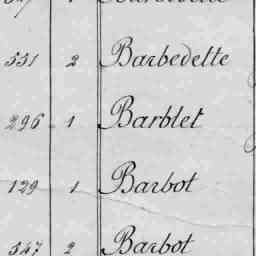 551 2 Barbedette
296 1 Barblet
129 1 Barbot
547 2 Barbot